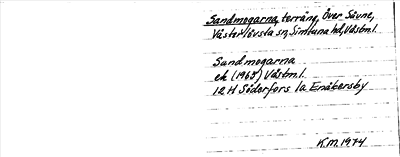 Sandmogarna, terräng, Över Sävne,
Västerlövsta sn, Simtuna hd, Västm.l.
Sandmogarna
ek (1968) Västm.l.
12 H Söderfors 1a Enåkersby
K.M. 1974